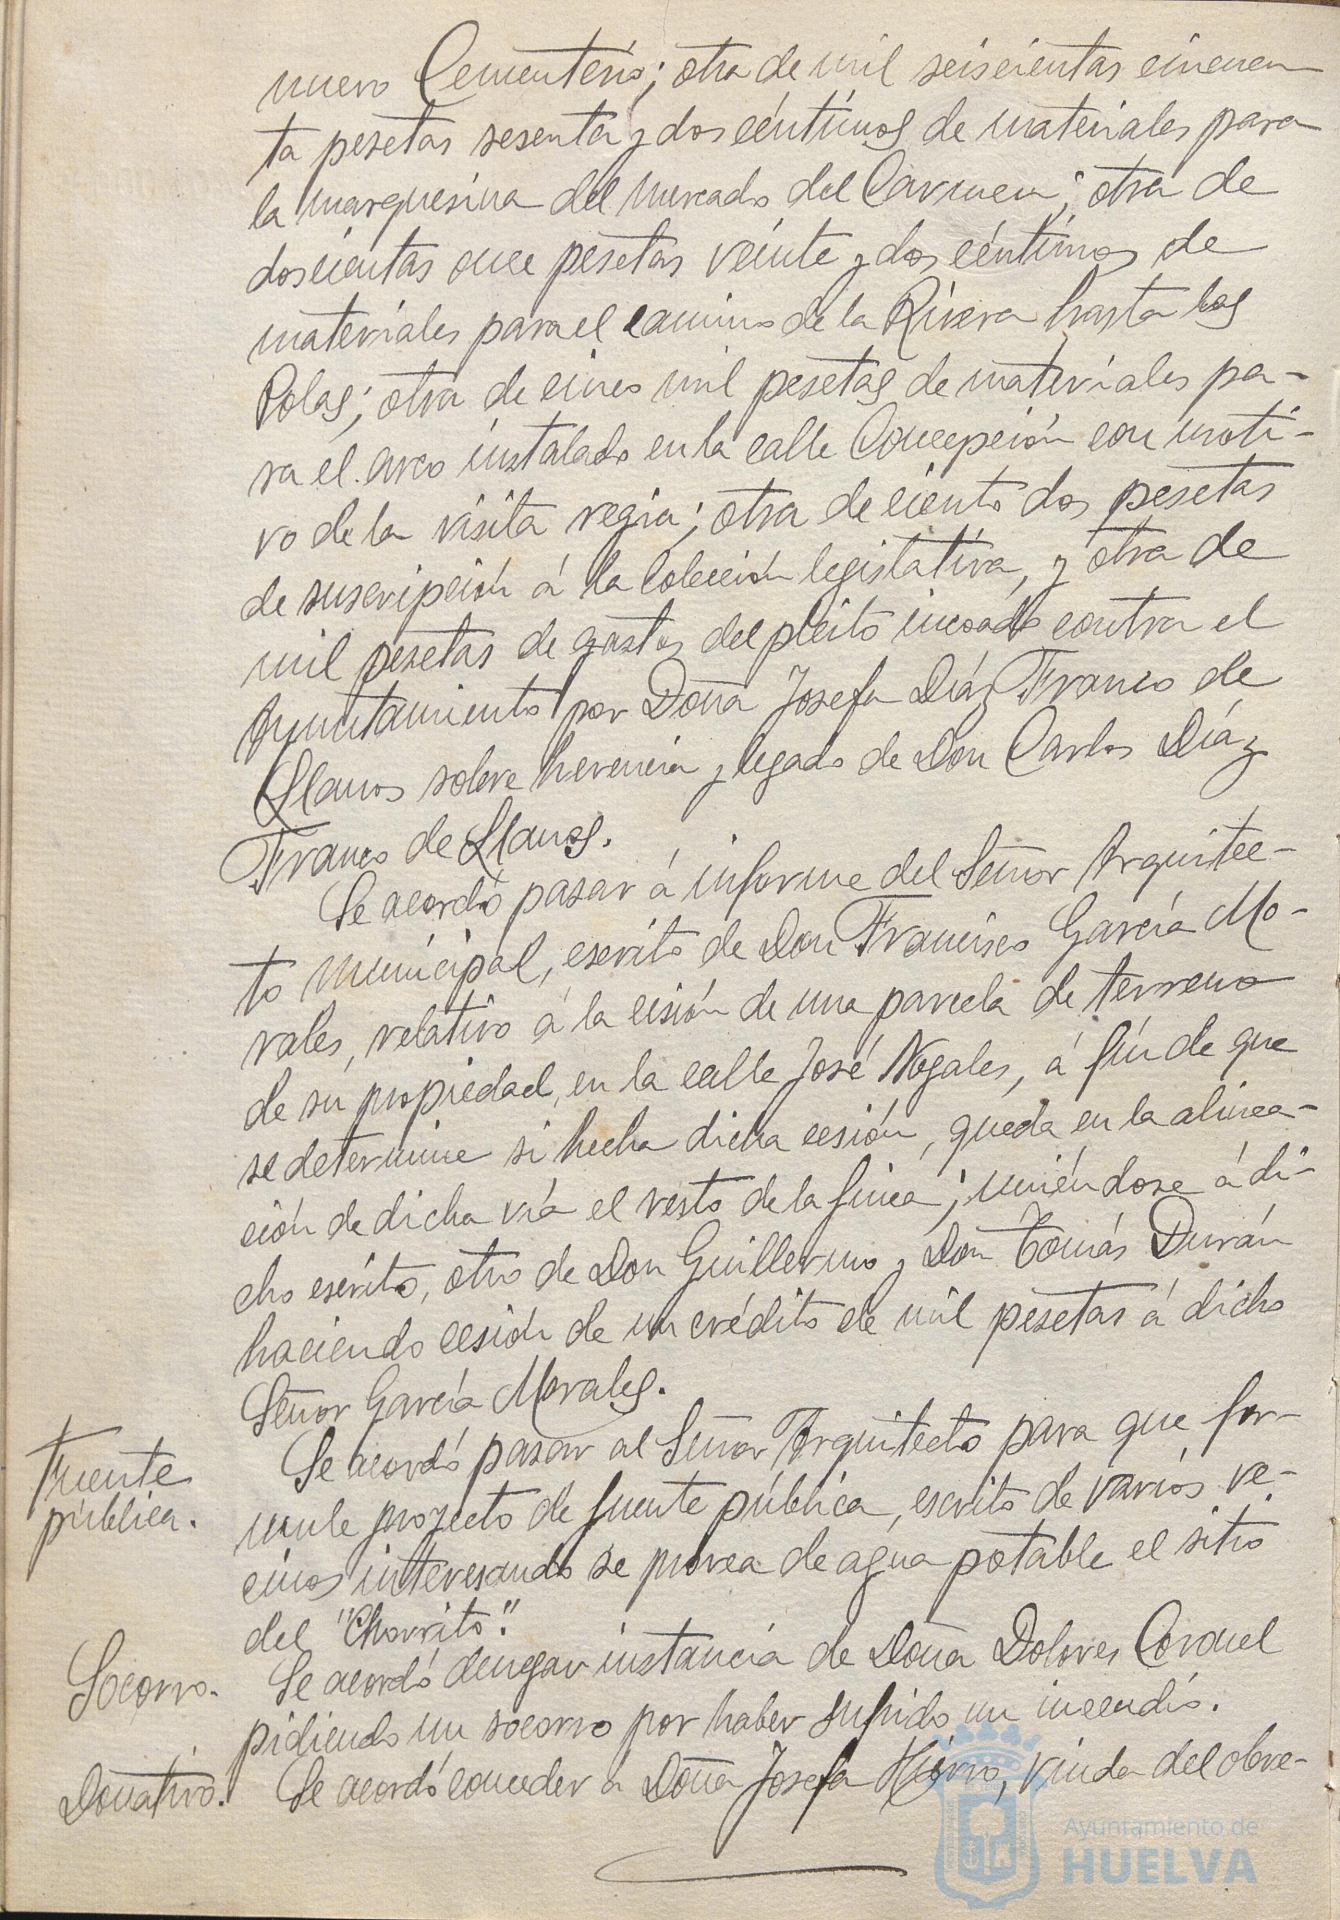 nuevo Cementerio; otra de mil seiscientas cincuen
ta pesetas sesenta y dos céntimos de materiales para
la marquesina del Mercado del Carmen; otra de
doscientas once pesetas veinte y dos céntimos de
materiales para el camino de la Rivera hasta las
Colas; otra de cinco mil pesetas de materiales pa-
ra el arco instalado en la calle Concepción con moti-
vo de la visita regia; otra de ciento dos pesetas
de suscripción á la Colección legislativa, y otra de
mil pesetas de gastos del pleito incoado contra el
Ayuntamiento por Doña Josefa Díaz Franco de
Llanos sobre herencia y legado de Don Carlos Díaz
Franco de Llanos.
Se acordó pasar á informe del Señor Arquitec-
to Municipal, escrito de Don Francisco García Mo-
rales, relativo á la cesión de una parcela de terreno
de su propiedad, en la calle José Nogales, á fín de que
se determine si hecha dicha cesión, queda en la alinea-
ción de dicha vía el resto de la finca; uniéndose á di-
cho escrito, otro de Don Guillermo y Don Tomás Durán
haciendo cesión de un crédito de mil pesetas á dicho
Señor García Morales.
Fuente
pública.
Se acordó pasar al Señor Arquitecto para que for-
mule proyecto de fuente pública, escrito de varios ve-
cinos interesando se provea de agua potable el sitio
del "Chorrito".
Socorro.
Se acordó denegar instancia de Doña Dolores Coronel
pidiendo un socorro por haber sufrido un incendio.
Donativo.
Se acordó conceder a Doña Josefa Hierro, viuda del obre-
Ayuntamiento de
HUELVA